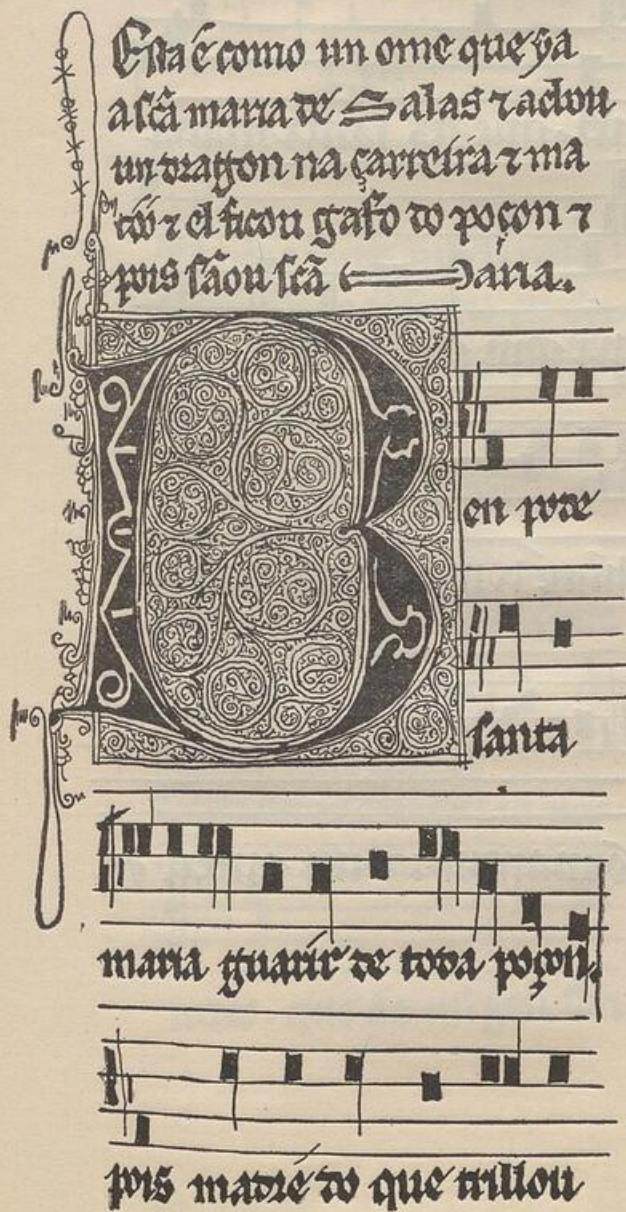 Esta é como un ome que ya
a scã maria de Salas ⁊ achou
un dragon na çarreira ⁊ ma
tóó ⁊ el ficou gafo do poçon ⁊
pois sãou scã Maria.
Ben pode
santa
maria guarir de toda poçon.
pois madre do que trillou